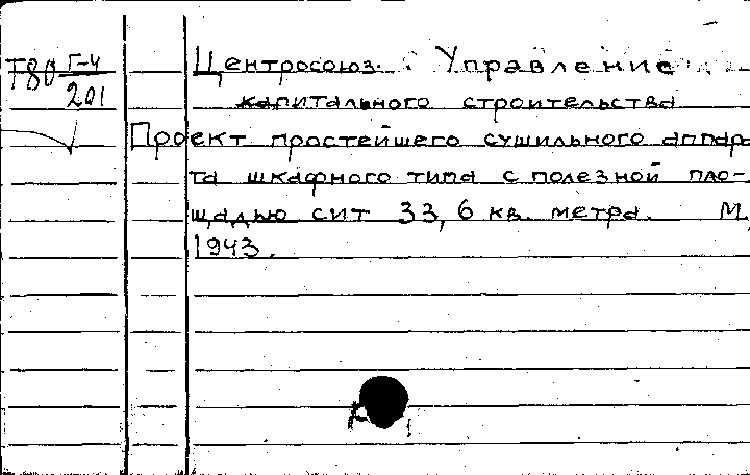 Т80 Г-4
201
Центросоюз. Управление
капитального строительства
Проект простейшего сушильного аппара
та шкафного типа с полезной пло-
щадью сит 33,6 кв. метра. М,
1943.